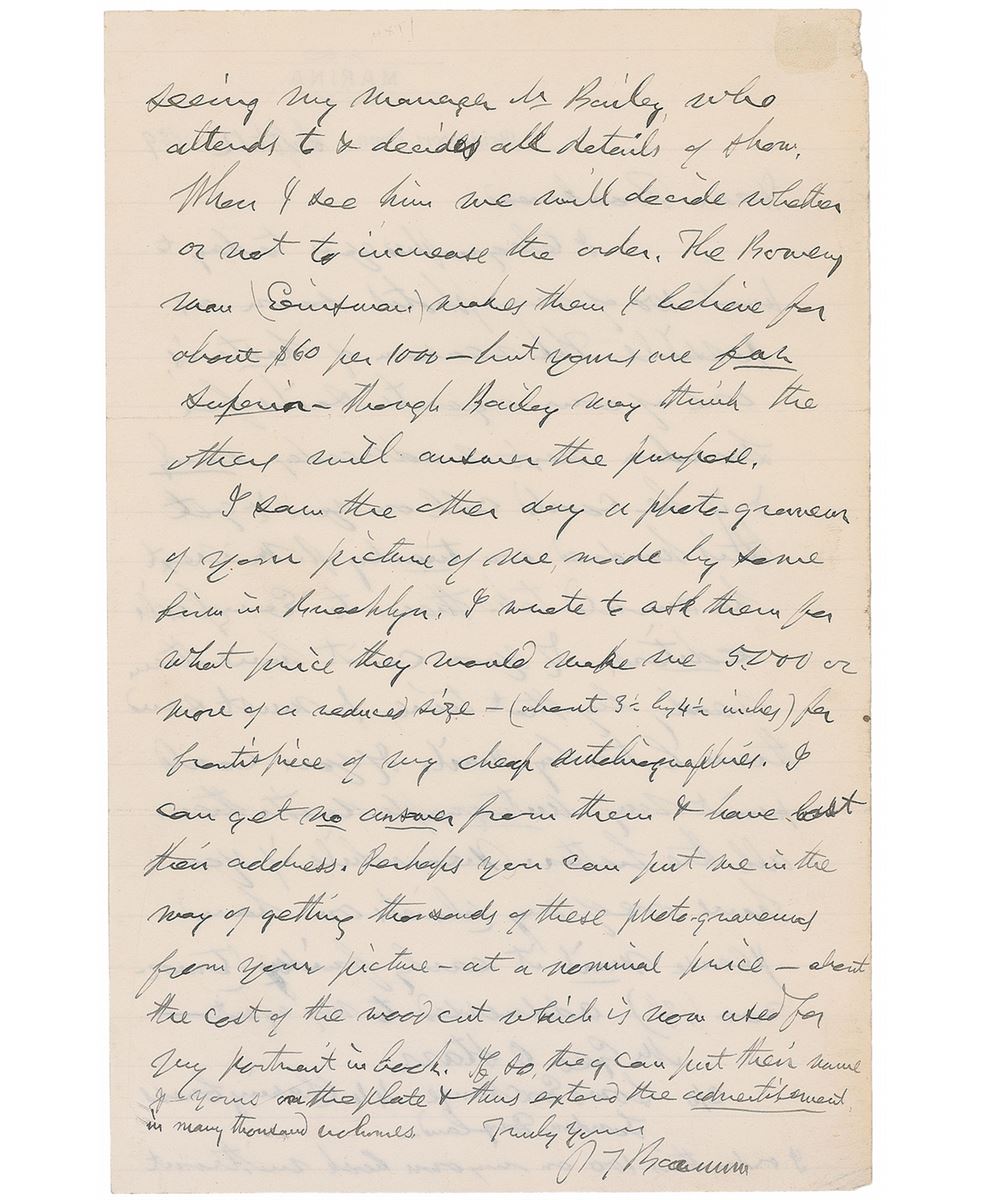 seeing my manager Mr Bailey who
attends to & decides all details of show.
When I see him we will decide whether
or not to increase the order. The Bowery
man (Eisnman) makes them I believe for
about $60 per 1000 — but yours are far
superior — though Bailey may think the
others will answer the purpose.
I saw the other day a photo-gravure
of your picture of me, made by some
firm in Brooklyn. I wrote to ask them for
what price they would make me 5000 or
more of a reduced size — (about 3½ by 4½ inches) for
frontispiece of my cheap autobiographies. I
can get no answer from them & have lost
their address. Perhaps you can put me in the
way of getting thousands of these photo-gravures
from your picture — at a nominal price — about
the cost of the wood cut which is now used for
my portrait in book. If so, they can put their name
& yours on the plate & thus extend the advertisement
in many thousand volumes. Truly yours
P T Barnum
MARINA